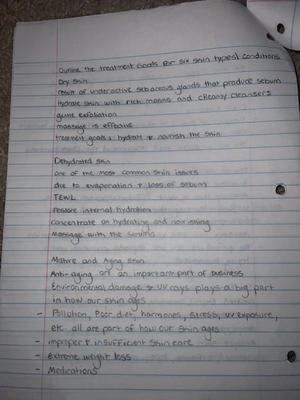 Outline the treatment Goals for six skin types & conditions
Dry Skin
result of underactive sebaceous glands that produce sebum
Hydrate skin with rich masks and creamy cleansers
gentle exfoliation
massage is effective
treatment goals: hydrate & nourish the skin
Dehydrated skin
one of the most common skin issues
due to evaporation & loss of sebum
TEWL
Restore internal hydration
Concentrate on hydrating and nourishing
Massage with the serums
Mature and Aging skin
Anti-aging are an important part of business
Environmental damage & UV rays plays a big part
in how our skin ages
- Pollution, Poor diet, hormones, stress, UV exposure,
etc. all are part of how our skin ages
- improper & insufficient skin care
- extreme weight loss
- Medications